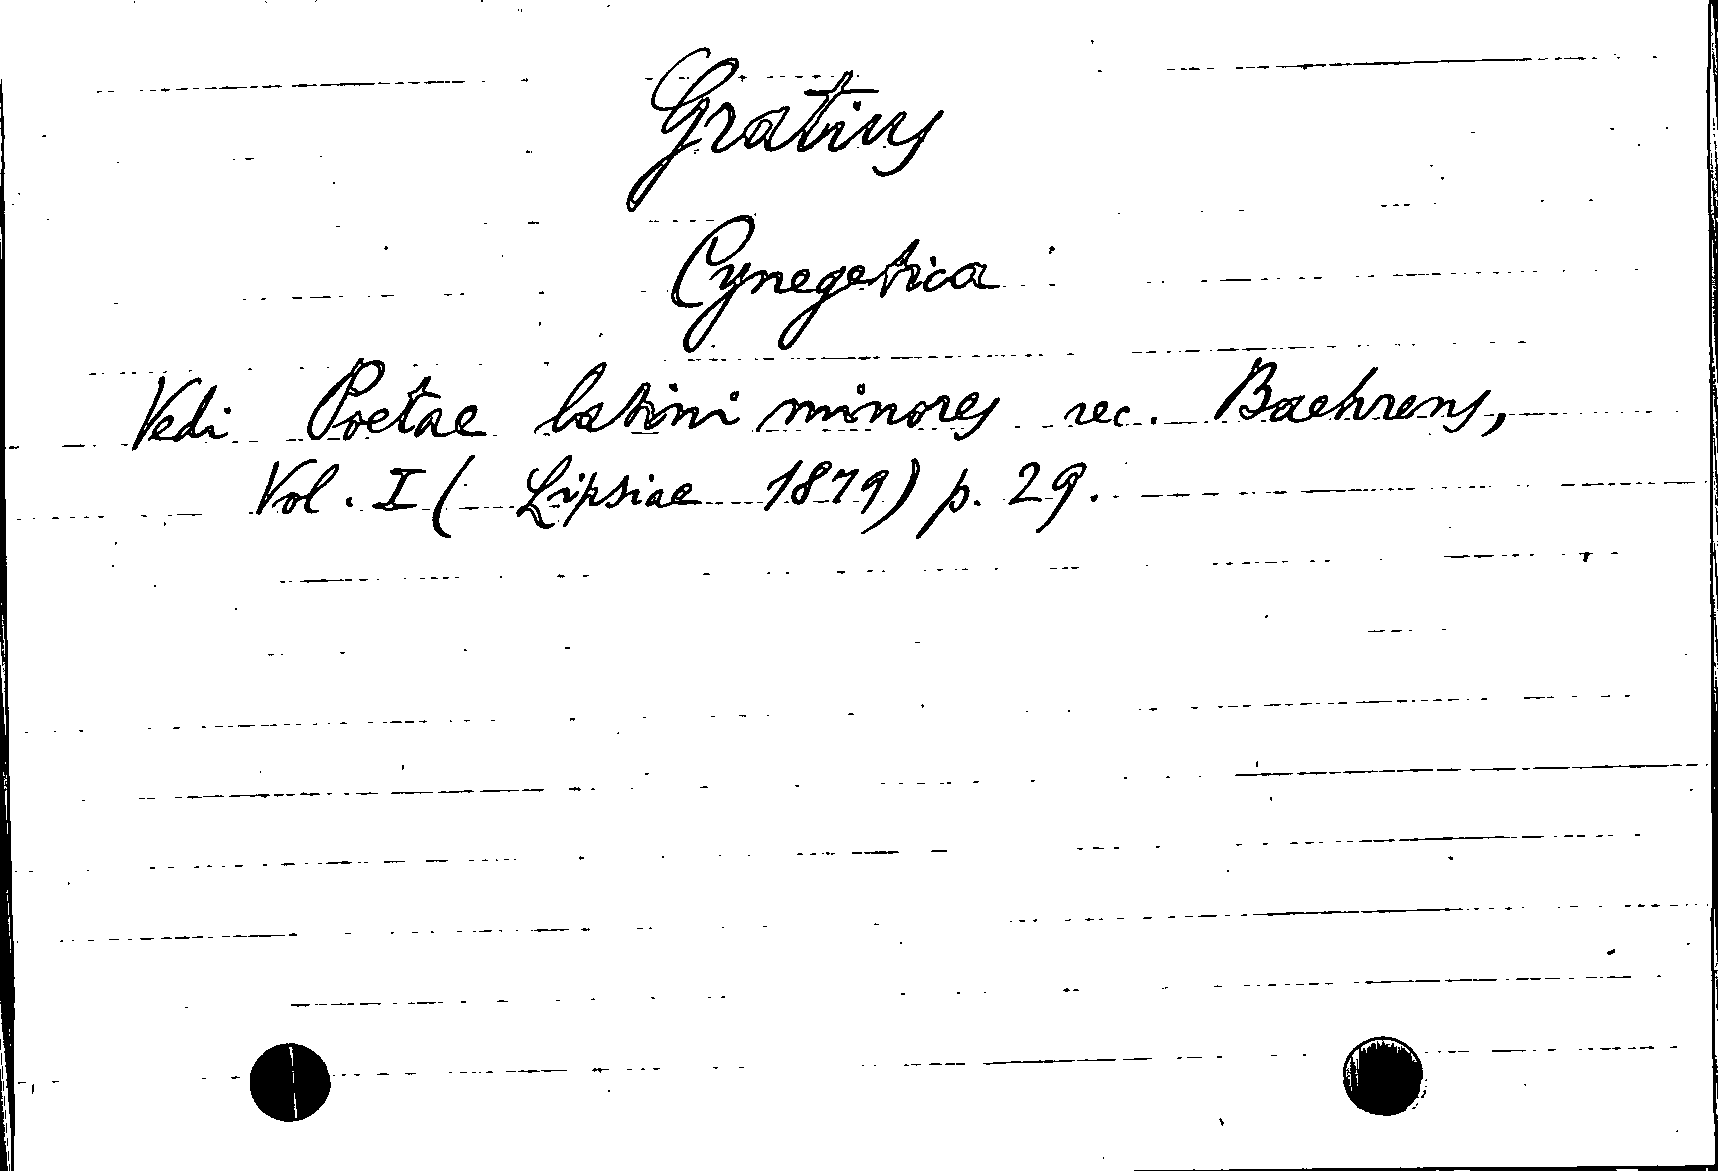 Gratius
Cynegetica
Vedi Poetae latini minores rec. Baehrens,
Vol. I ( Lipsiae 1879) p. 29.